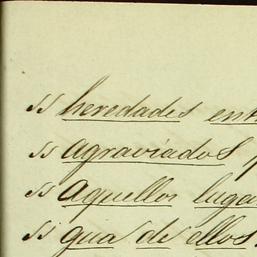 " heredades ent
" agraviados,
" aquellos luga
" gua de ellos.